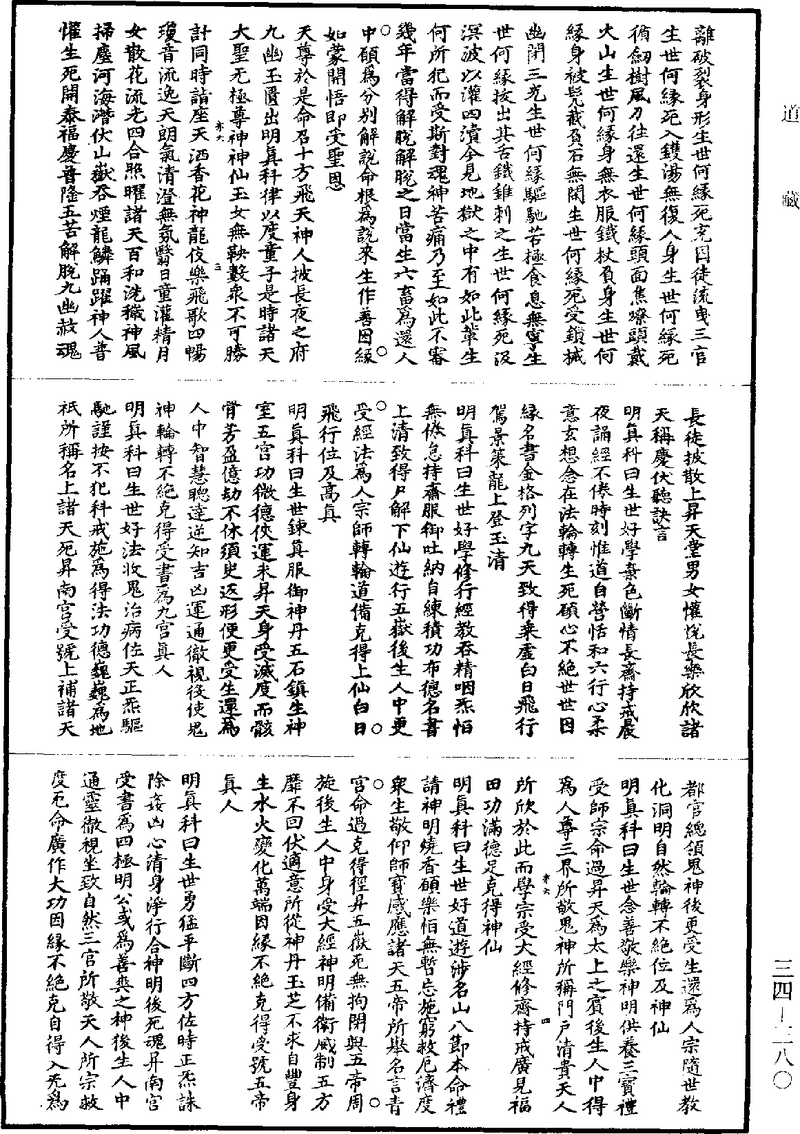 道藏
三四—三八〇
離破裂身形生世何緣死充囚徒流曳三官
生世何緣死入鑊湯無復人身生世何緣死
循劒樹風刀往還生世何緣頭面焦燎頭戴
火山生世何緣身無衣服鐵杖負身生世何
緣身被髡截負石無閑生世何緣死受鎖械
幽閉三光生世何緣驅馳苦極食息無寧生
世何緣拔出其舌鐵錐刺之生世何緣死汲
溟波以灌四瀆今見地獄之中有如此輩生
何所犯而受斯對魂神苦痛乃至如此不審
幾年當得解脫解脫之日當生六畜為還人
中願為分別解說命根為說來生作善因緣
如蒙開悟即受聖恩
天尊於是命召十方飛天神人披長夜之府
九幽玉匱出明真科律以度童子是時諸天
大聖无極尊神神仙玉女無鞅數衆不可勝
計同時詣座天洒香花神龍伎樂飛歌四暢
瓊音流逸天朗氣清澄無氛翳日童灌精月
女散花流光四合照曜諸天百和洗穢神風
掃塵河海潛伏山嶽吞煙龍鱗踊躍神人普
懽生死開泰福慶普隆五苦解脫九幽赦魂
長徒披散上昇天堂男女懽悅長樂欣欣諸
天稱慶伏聽訣言
明真科曰生世好學棄色斷情長齋持戒晨
夜誦經不倦時刻惟道自營恬和六行心柔
意玄想念在法輪轉生死願心不絕世世因
緣名書金格列字九天致得乗虛白日飛行
駕景策龍上登玉清
明真科曰生世好學修行經教吞精咽炁怕
無倏怠持齋服御吐納自練積功布德名書
上清致得尸解下仙遊行五嶽後生人中更
受經法為人宗師轉輪道備克得上仙白日
飛行位及高真
明真科曰生世鍊真服御神丹五石鎮生神
室五宮功微德俠運未昇天身受滅度而骸
骨芳盈億劫不休須臾返形便更受生還為
人中智慧聰達逆知吉凶運通徹視役使鬼
神輪轉不絕克得受書為九宮真人
明真科曰生世好法收鬼治病佐天正炁驅
馳謹按不犯科戒施為得法功德巍巍為地
祇所稱名上諸天死昇南宮受號上補諸天
都官總領鬼神後更受生還為人宗隨世教
化洞明自然輪轉不絕位及神仙
明真科曰生世念善敬樂神明供養三寶禮
受師宗命過昇天為太上之賓後生人中得
為人尊三界所敬鬼神所稱門戶清貴天人
所欣於此而學宗受大經修齋持戒廣見福
田功滿德足克得神仙
明真科曰生世好道遊涉名山八節本命禮
請神明燒香願樂怕無暫忘施窮救厄濟度
衆生敬仰師寶感應諸天五帝所舉名言青
宮命過克得徑昇五嶽死無拘閉與五帝周
旋後生人中身受大經神明備衛威制五方
靡不回伏適意所從神丹玉芝不求自豐身
生水火變化萬端因緣不絕克得受號五帝
真人
明真科曰生世勇猛平斷四方佐時正炁誅
除姦凶心清身淨行合神明後死魂昇南宮
受書為四極明公或為善爽之神後生人中
通靈徹視坐致自然三官所敬天人所宗救
度死命廣作大功因緣不絕克自得入无為